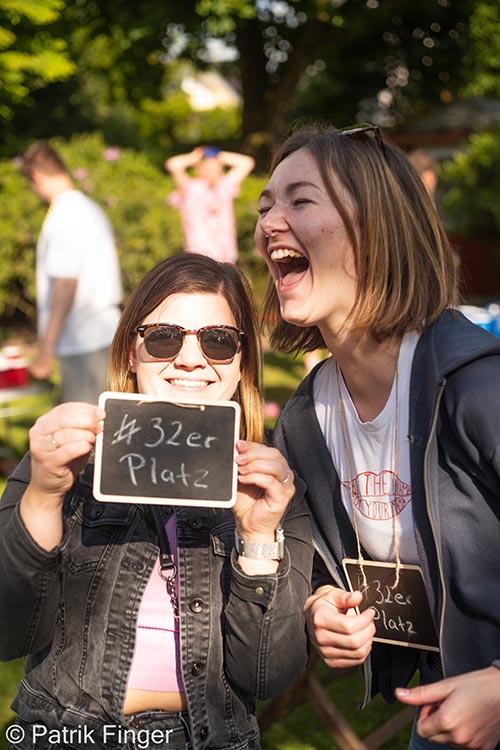 #32er
Platz
THE
YOUR
#32er
Platz
© Patrik Finger